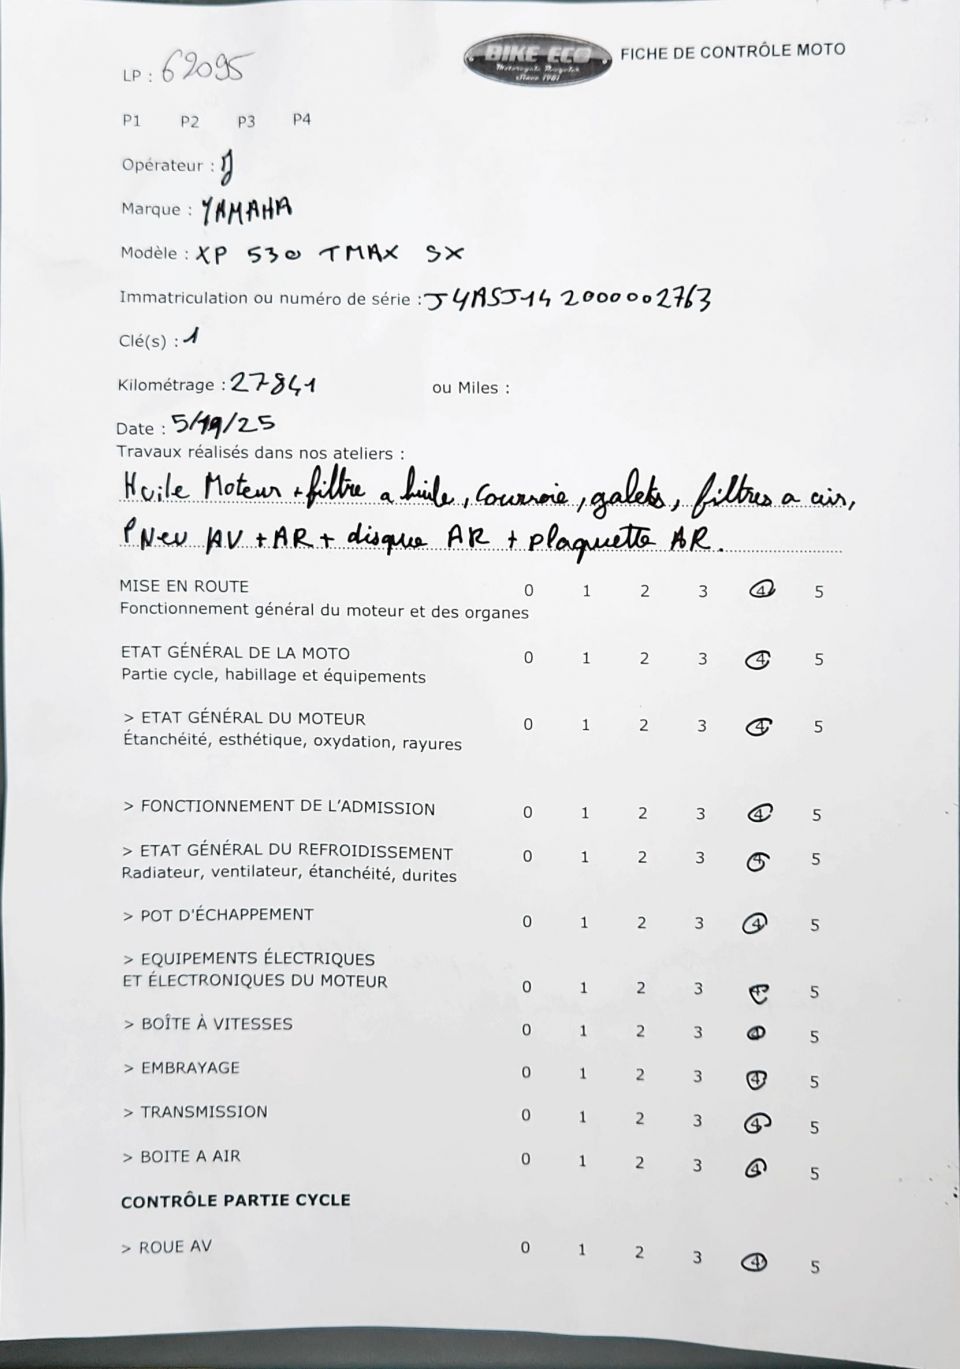 LP : 62095
BIKE ECO
Motorcycle Recycler
Since 1981
FICHE DE CONTRÔLE MOTO
P1 P2 P3 P4
Opérateur : J
Marque : YAMAHA
Modèle : XP 530 TMAX SX
Immatriculation ou numéro de série : J4ASJ142000002763
Clé(s) : 1
Kilométrage : 27841 ou Miles :
Date : 5/19/25
Travaux réalisés dans nos ateliers :
Huile Moteur + filtre a huile, courroie, galets, filtres a air,
PNeu AV + AR + disque AR + plaquette AR.
MISE EN ROUTE 0 1 2 3 4 5
Fonctionnement général du moteur et des organes
ETAT GÉNÉRAL DE LA MOTO 0 1 2 3 4 5
Partie cycle, habillage et équipements
> ETAT GÉNÉRAL DU MOTEUR 0 1 2 3 4 5
Étanchéité, esthétique, oxydation, rayures
> FONCTIONNEMENT DE L'ADMISSION 0 1 2 3 4 5
> ETAT GÉNÉRAL DU REFROIDISSEMENT 0 1 2 3 4 5
Radiateur, ventilateur, étanchéité, durites
> POT D'ÉCHAPPEMENT 0 1 2 3 4 5
> EQUIPEMENTS ÉLECTRIQUES
ET ÉLECTRONIQUES DU MOTEUR 0 1 2 3 4 5
> BOÎTE À VITESSES 0 1 2 3 4 5
> EMBRAYAGE 0 1 2 3 4 5
> TRANSMISSION 0 1 2 3 4 5
> BOITE A AIR 0 1 2 3 4 5
CONTRÔLE PARTIE CYCLE
> ROUE AV 0 1 2 3 4 5